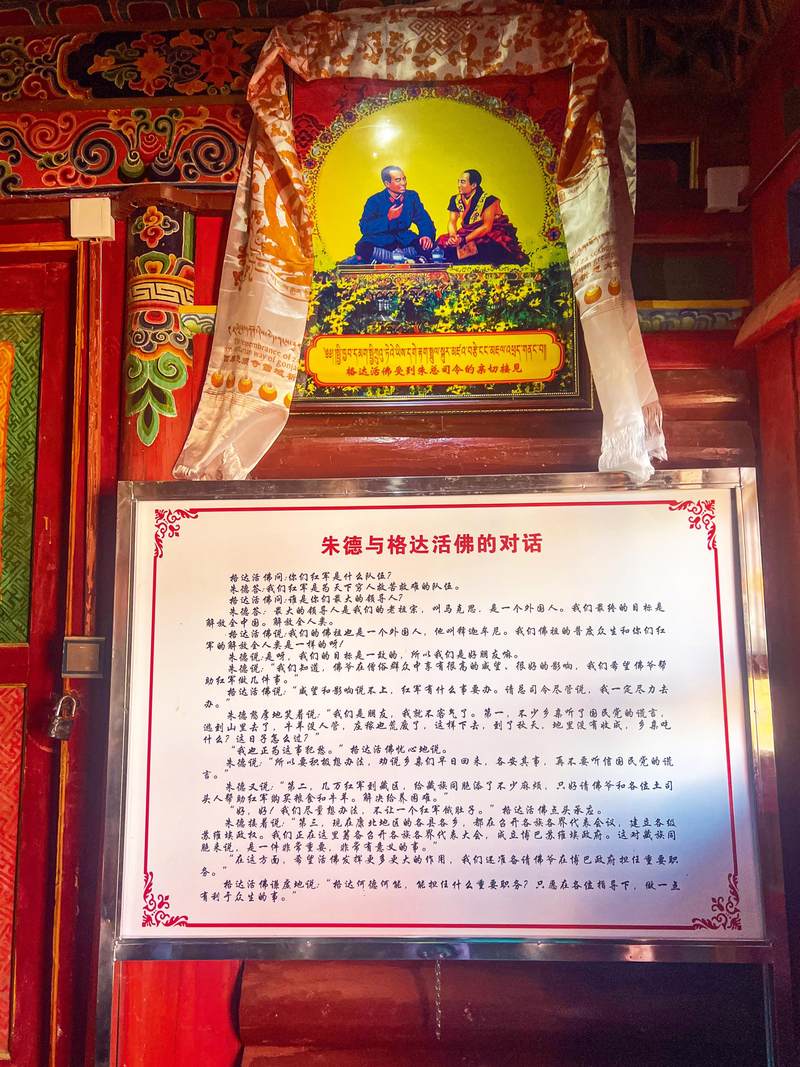 格达活佛受到朱总司令的亲切接见
朱德与格达活佛的对话
格达活佛问:你们红军是什么队伍?
朱德答:我们红军是为天下穷人救苦救难的队伍。
格达活佛问:谁是你们最大的领导人?
朱德答:最大的领导人是我们的老祖宗,叫马克思,是一个外国人。我们最终的目标是
解放全中国。解放全人类。
格达活佛说:我们的佛祖也是一个外国人,他叫释迦牟尼。我们佛祖的普度众生和你们红
军的解放全人类是一样的呀!
朱德说:是呀,我们的目标是一致的,所以我们是好朋友嘛。
朱德说:“我们知道,佛爷在僧俗群众中享有很高的威望,很好的影响,我们希望佛爷帮
助红军做几件事。”
格达活佛说:“威望和影响说不上,红军有什么事要办。请总司令尽管说,我一定尽力去
办。”
朱德憨厚地笑着说:“我们是朋友,我就不客气了。第一,不少乡亲听了国民党的谎言,
逃到山里去了,牛羊没人管,庄稼也荒废了,这样下去,到了秋天,地里没有收成,乡亲吃
什么?这日子怎么过?”
“我也正为这事犯愁。”格达活佛忧心地说。
朱德说:“所以要积极想办法,劝说乡亲们早日回来,各安其事,再不要听信国民党的谎
言。”
朱德又说:“第二,几万红军到藏区,给藏族同胞添了不少麻烦,只好请佛爷和各位土司
头人帮助红军购买粮食和牛羊。解决给养困难。”
“好,好!我们尽量想办法,不让一个红军饿肚子。”格达活佛点头承应。
朱德接着说:“第三,现在康北地区的各县各乡,都在召开各族各界代表会议,建立各级
苏维埃政权。我们正在这里筹备召开各族各界代表大会,成立博巴苏维埃政府。这对藏族同
胞来说,是一件非常重要,非常有意义的事。”
“在这方面,希望活佛发挥更多更大的作用,我们还准备请佛爷在博巴政府担任重要职
务。”
格达活佛谦虚地说:“格达何德何能,能担任什么重要职务?只愿在各位指导下,做一点
有利于众生的事。”